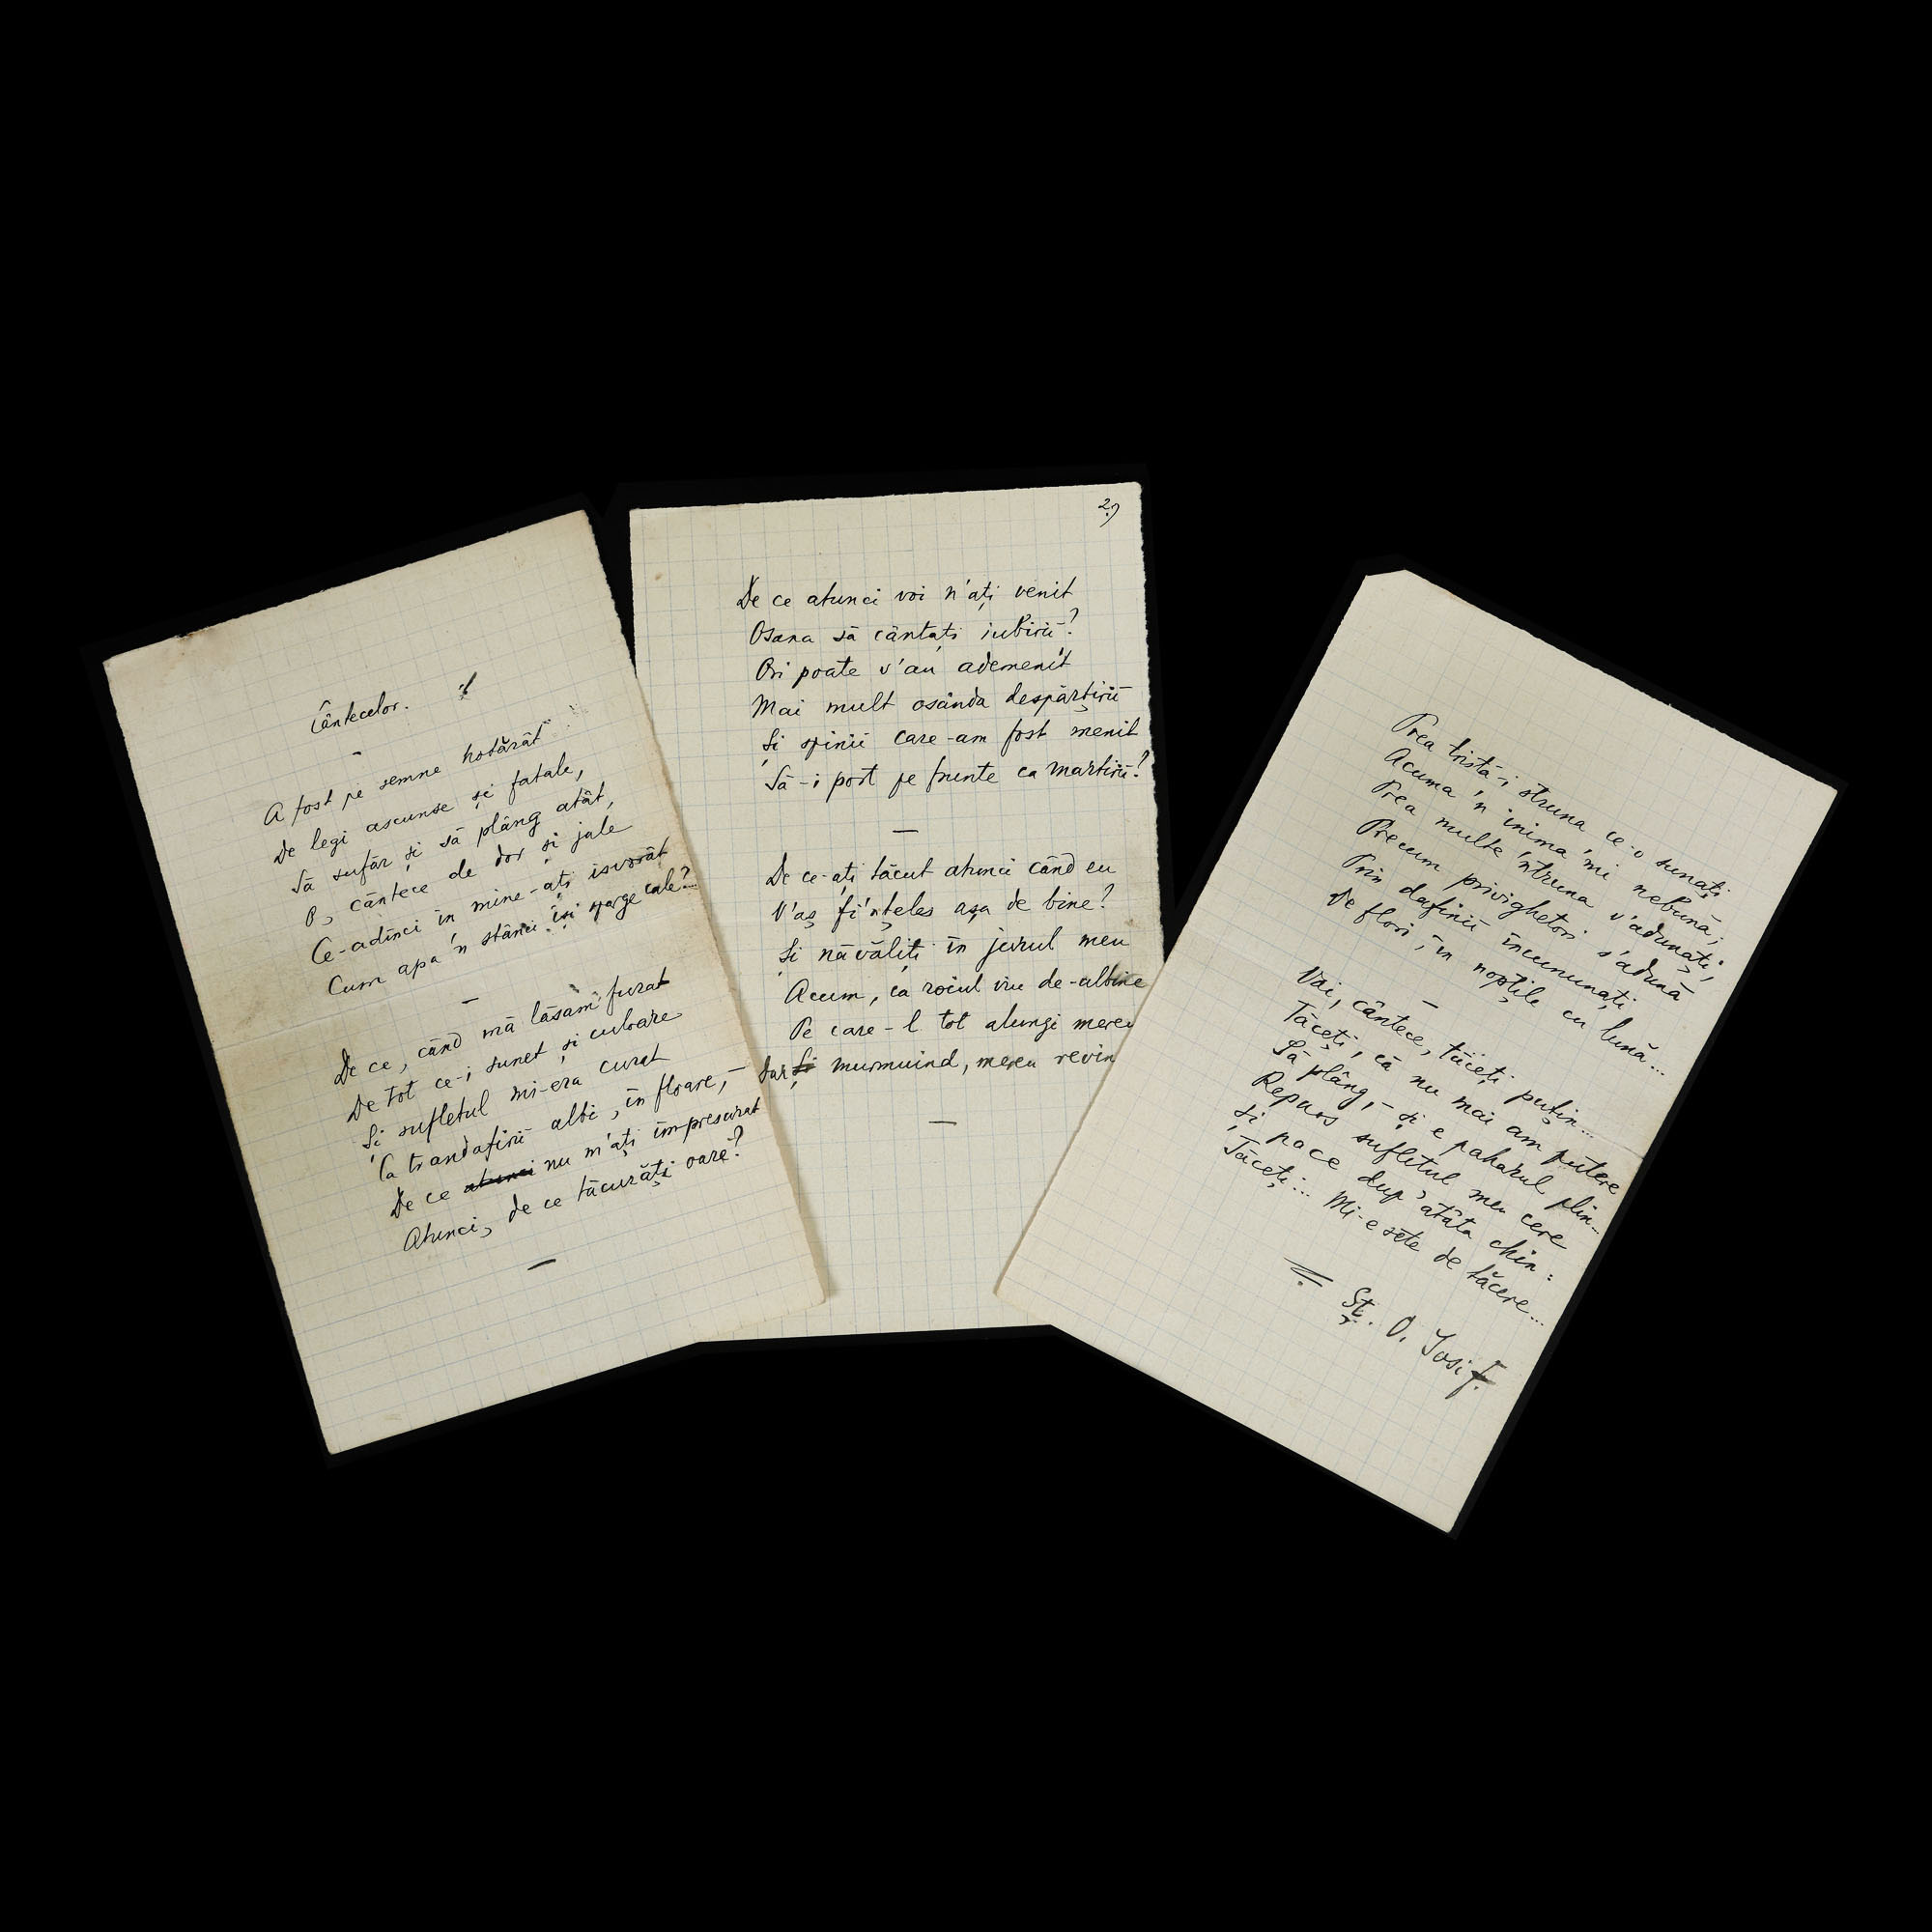 Cântecelor.
A fost pe semne hotărât
De legi ascunse și fatale,
Să sufăr și să plâng atât,
O, cântece de dor și jale
Ce-adînci în mine-ați isvorât
Cum apa 'n stânci își sparge cale?
De ce, când mă lăsam furat
De tot ce-i sunet și culoare
Și sufletul mi-era curat
Ca trandafirii albi, în floare, –
De ce atunci nu m'ați împresurat
Atunci, de ce tăcurăți oare?
2.)
De ce atunci voi n'ați venit
Osana să cântați iubirii?
Ori poate v'au ademenit
Mai mult osânda despărțirii
Și spinii care-am fost menit
Să-i port pe frunte ca martirii?
De ce-ați tăcut atunci când eu
V'aș fi'nțeles așa de bine?
Și năvăliți în jurul meu
Acum, ca roiul viu de-albine
Pe care-l tot alungi mereu
Dar Și murmuind, mereu revin
Prea tristă-i struna ce-o sunați
Acuma 'n inima 'mi nebună;
Prea multe 'ntruna v'adunați,
Precum privighetori s'adună
Prin dafinii încununați
De flori, în nopțile cu lună...
Voi, cântece, tăceți puțin...
Tăceți, că nu mai am putere
Să plâng, – și e paharul plin...
Repaos sufletul meu cere
Și pace dup' atâta chin:
Tăceți... Mi-e sete de tăcere...
Șt. O. Iosif.